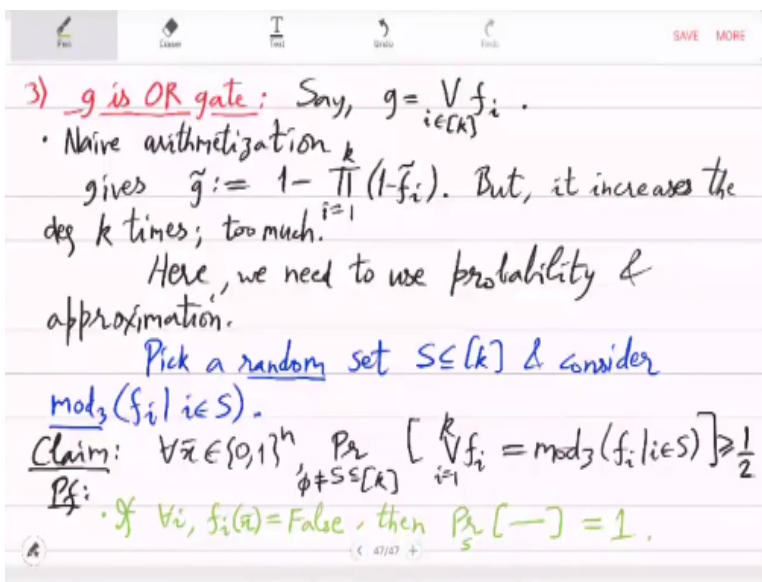 Pen Eraser Text Undo Redo SAVE MORE
3) g is OR gate: Say, g = ⋁_{i∈[k]} f_i .
· Naive arithmetization
gives g̃ := 1 - ∏_{i=1}^{k} (1-f̃_i). But, it increases the
deg k times; too much.
Here, we need to use probability &
approximation.
Pick a random set S⊆[k] & consider
mod₃(f_i | i∈S).
Claim: ∀x̄ ∈{0,1}ⁿ, Pr_{φ≠S⊆[k]} [ ⋁_{i=1}^{k} f_i = mod₃(f_i | i∈S) ] ≥ 1/2
Pf:
· If ∀i, f_i(x̄) = False, then Pr_S [—] = 1.
< 47/47 +